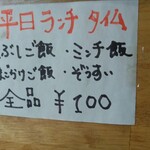 平日ランチタイム
ぶしご飯・ミンチ飯
おかりご飯・ぞうすい
全品 ¥100